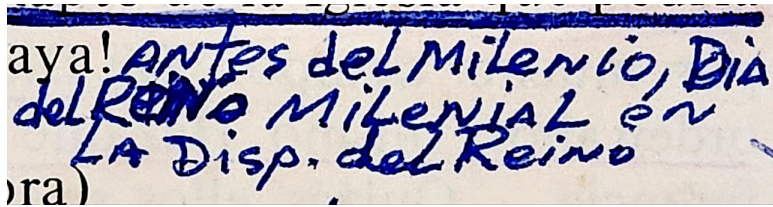 de la iglesia que
aya! Antes del Milenio, Dia
del Reino Milenial en
La Disp. del Reino
ora)